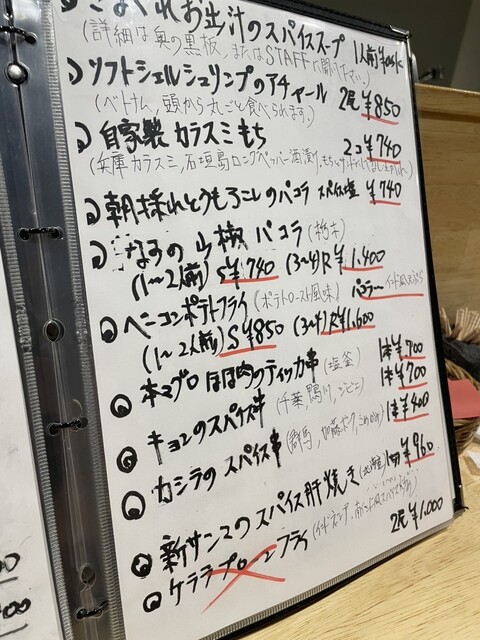 きまぐれお出汁のスパイススープ 1人前 ¥ask
(詳細は奥の黒板、またはSTAFFに聞いて下さい。)
ソフトシェルシュリンプのアチャール 2尾 ¥850
(ベトナム、頭から丸ごと食べられます。)
自家製 カラスミもち 2コ ¥740
(兵庫カラスミ、石垣島ロングペッパー酒漬け、もちにサンド
朝採れとうもろこしのパコラ スパイス塩 ¥740
なすの山椒パコラ (栃木)
(1〜2人前) S¥740 (3〜4)R¥1,400
パコラ=インド風天ぷら
ベーコンポテトフライ (ポテトロースト風味)
(1〜2人前) S¥850 (3〜4)R¥1,600
本マグロほほ肉のティッカ串 (塩釜) 1本¥700
キョンのスパイス串 (千葉鴨川、ジビエ) 1本¥700
カシラのスパイス串 (群馬、加藤ポーク、こめかみ) 1本¥400
新サンマのスパイス肝焼き (北海道) ¥960
ケララプローンフライ 2尾 ¥1,000